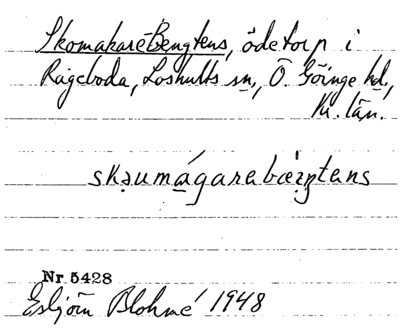 Skomakare-Bengtens, ödetorp i
Rågeboda, Loshults sn, Ö. Göinge hd,
Kr. län.
skəumágarebæ̀ŋtens
Nr 5428
Esbjörn Blohmé 1948